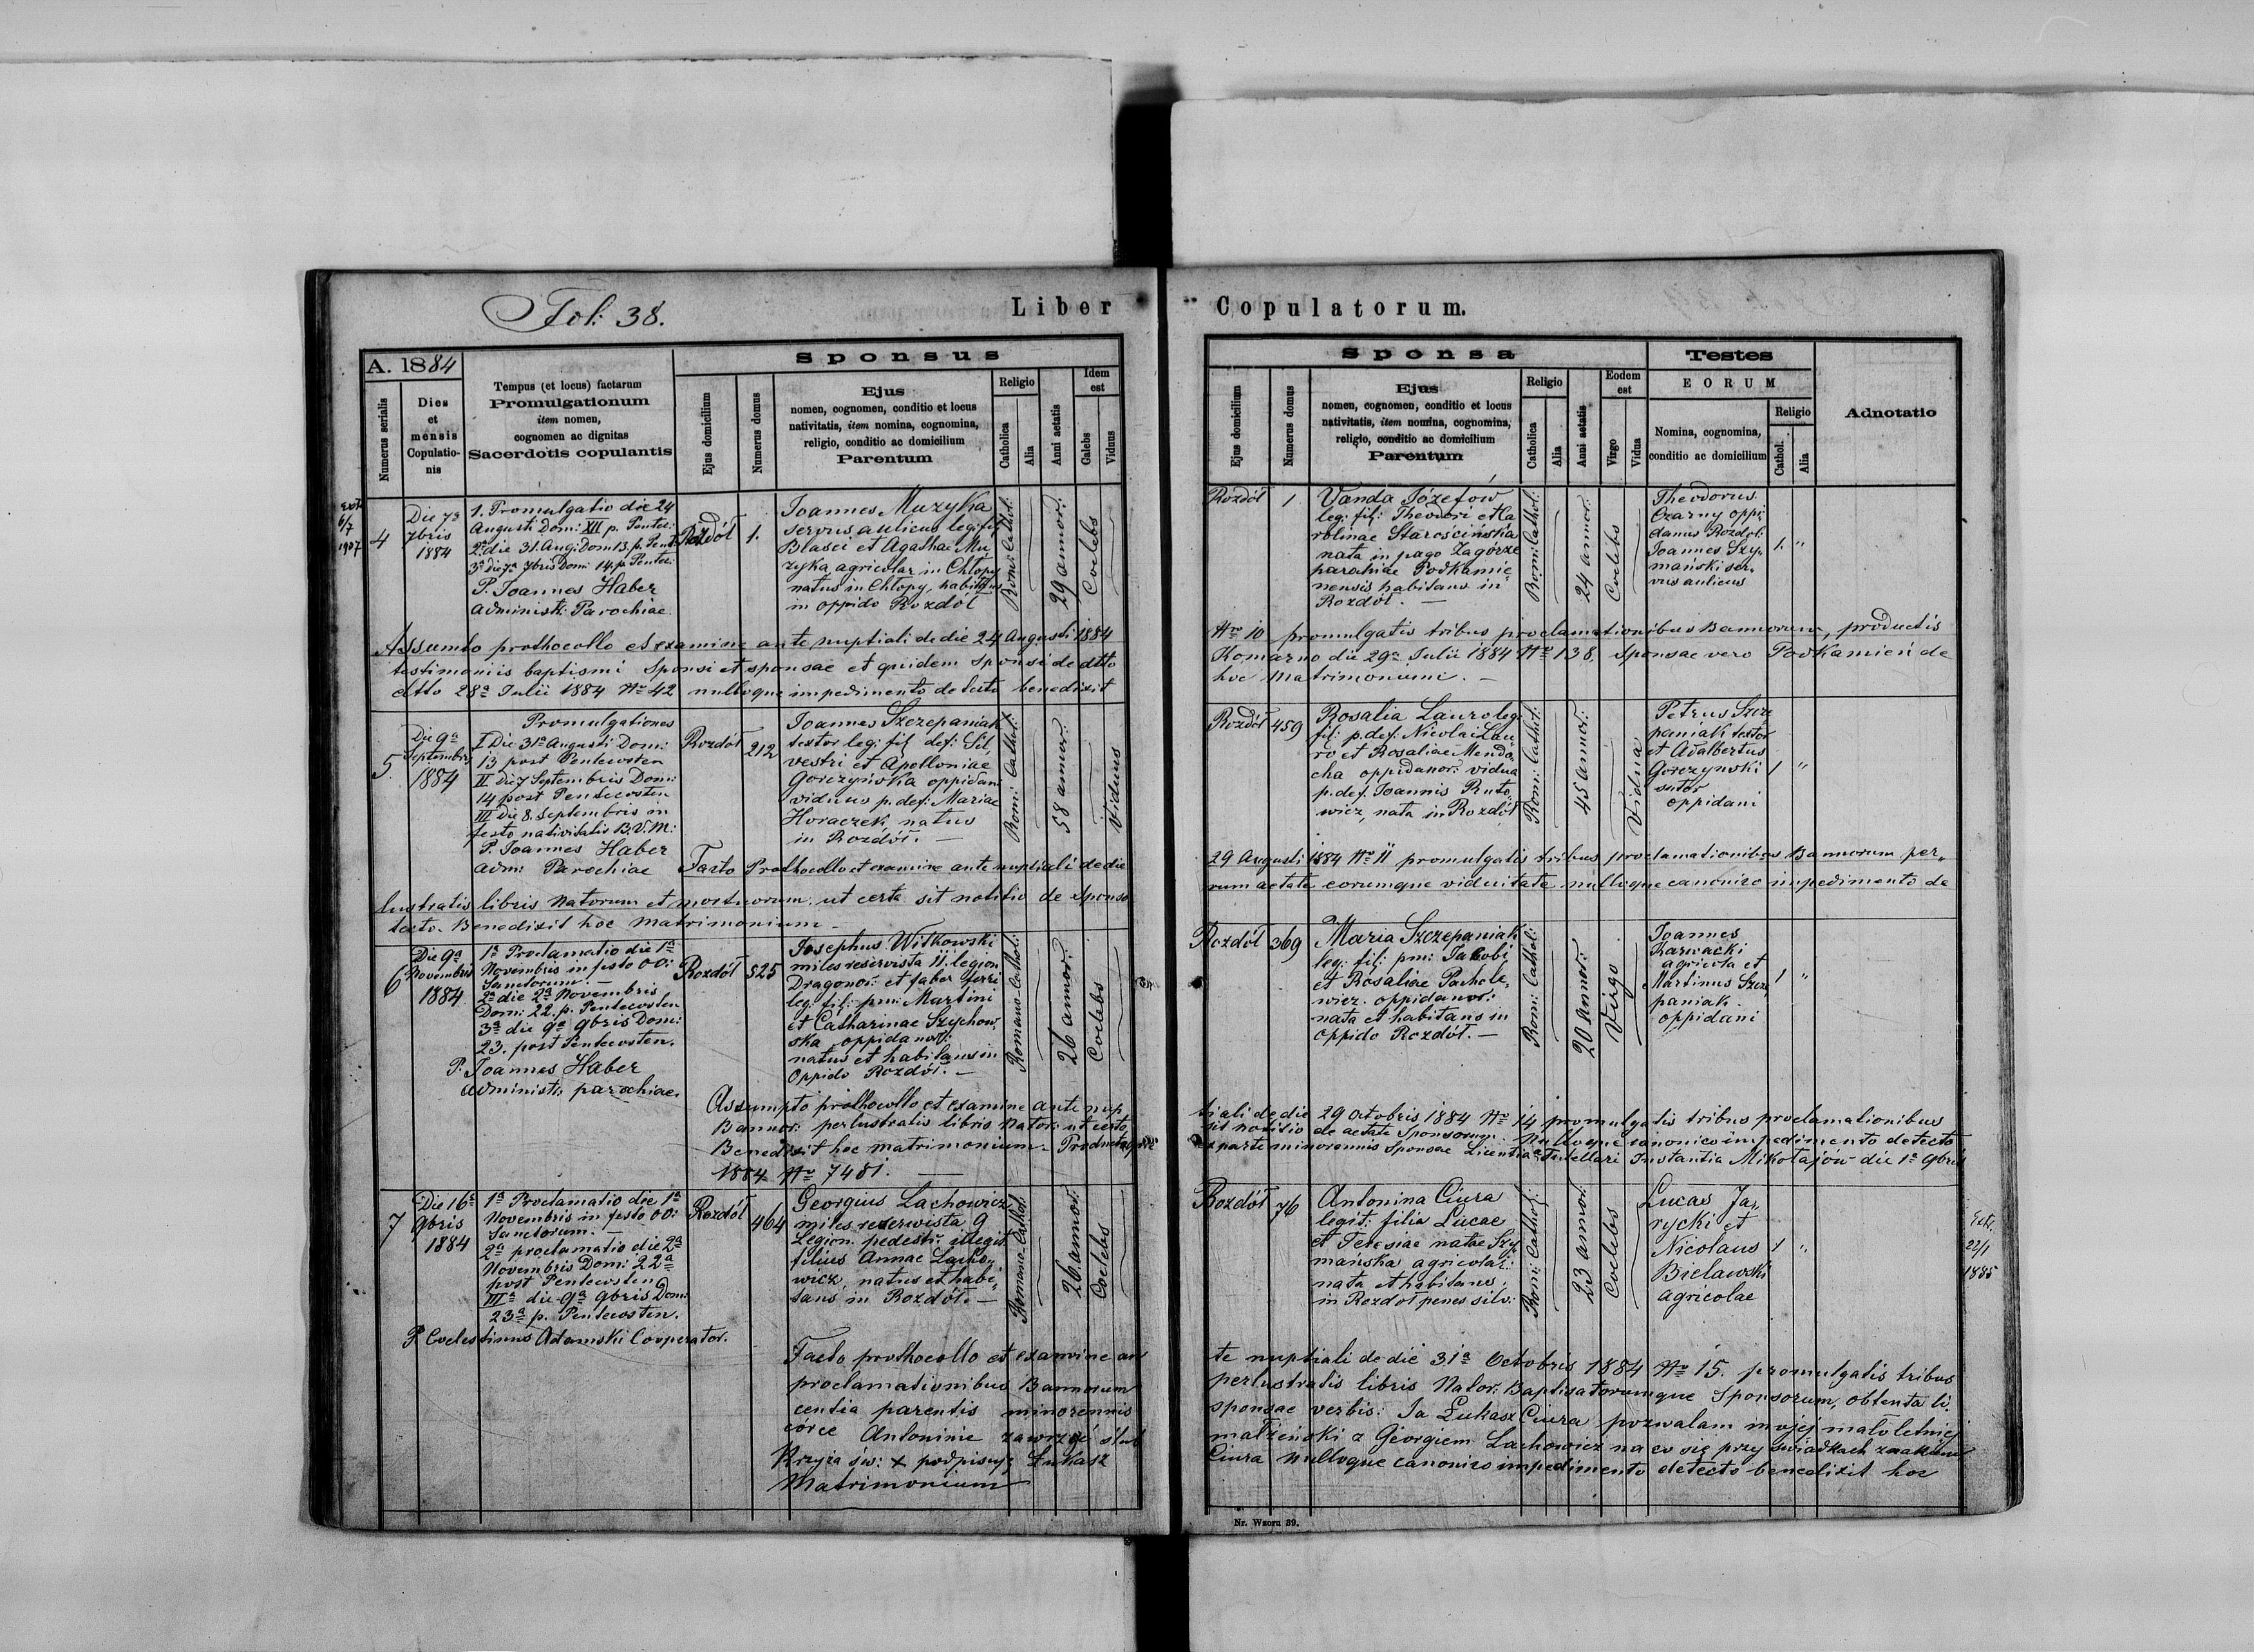 Fol: 38.
Liber
A. 1884
Numerus serialis
Dies
et
mensis
Copulatio-
nis
Tempus (et locus) factarum
Promulgationum
item nomen,
cognomen ac dignitas
Sacerdotis copulantis
Sponsus
Ejus domicilium
Numerus domus
Ejus
nomen, cognomen, conditio et locus
nativitatis, item nomina, cognomina,
religio, conditio ac domicilium
Parentum
Religio
Catholica
Alia
Anni aetatis
Idem
est
Caelebs
Viduus
Extr.
6/7
1907
4
Die 7a
7bris
1884
1. Promulgatio die 24
Augusti Dom: XII p. Pentec:
2a die 31. Aug: Dom 13. p. Pent:
3a Die 7a 7bris Dom: 14. p. Pentec:
P. Joannes Haber
administr: Parochiae
Rozdół
1.
Joannes Muzyka
servus aulicus leg: fil
Blasei et Agathae Mu
zyka agricolar in Chłopy
natus in Chłopy, habitans
in oppido Rozdół
Rom: Cathol:
29 annor:
Coelebs
Assumto prothocollo et examine ante nuptiali de die 24 Augusti 1884
testimoniis baptismi Sponsi et sponsae et quidem Sponsi de dtto
dtto 28a Julii 1884 No 42 nulloque impedimento detecto benedixit
5
Die 9a
Septembris
1884
Promulgationes
I Die 31a Augusti Dom:
13 post Pentecosten
II Die 7 Septembris Dom:
14 post Pentecosten
III Die 8. Septembris in
festo nativitatis B.V.M:
P. Joannes Haber
adm: Parochiae
Rozdół
212
Joannes Szczepaniak
textor leg: fil: def: Sil„
vestri et Apolloniae
Gorczyńska oppidan:
viduus p. def: Mariae
Horaczek natus
in Rozdół. —
Rom: Cathol:
58 annor:
Viduus
Facto Prothocollo et examine ante nuptiali de die
lustratis libris Natorum et mortuorum, ut certa sit notitio de Sponso
tecto. Benedixit hoc Matrimonium —
6
Die 9a
Novembris
1884
1a Proclamatio die 1a
Novembris in festo OO:
Sanctorum. —
2a die 2a Novembris
Dom: 22. p. Pentecosten
3a die 9a 9bris Dom:
23. post Pentecosten.
P. Joannes Haber
administr: parochiae.
Rozdół
525
Josephus Witkowski
miles reservista 11. legion
Dragonor: et faber ferri
leg: fil: pm: Martini
et Catharinae Szychow„
ska oppidanor:
natus et habitans in
Oppido Rozdół. —
Romano-Cathol:
26 annor:
Coelebs
Assumpto prothocollo et examine ante nup
Bannor: perlustratis libris Nator: ut certa
Benedixit hoc matrimonium — Producta
1884 No 7481. —
7
Die 16a
9bris
1884
1a Proclamatio die 1a
Novembris in festo OO:
Sanctorum. —
2a proclamatio die 2a
Novembris Dom: 22a
post Pentecosten
IIIa die 9a 9bris Dom:
23a p. Pentecosten.
P. Coelestinus Adamski Cooperator.
Rozdół
464
Georgius Lachowicz
miles reserwista 9
Legion. pedestr: illegit
filius Annae Lacho„
wicz, natus et habi„
tans in Rozdół. —
Romano-Cathol:
26. annor:
Coelebs
Facto prothocollo et examine an
proclamationibus Bannorum
centia parentis minorennis
córce Antoninie zawrzeć ślub
Krzyża św: + podpisuję Łukasz
Matrimonium
Copulatorum.
Sponsa
Ejus domicilium
Numerus domus
Ejus
nomen, cognomen, conditio et locus
nativitatis, item nomina, cognomina,
religio, conditio ac domicilium
Parentum
Religio
Catholica
Alia
Anni aetatis
Eodem
est
Virgo
Vidua
Testes
EORUM
Nomina, cognomina,
conditio ac domicilium
Religio
Cathol.
Alia
Adnotatio
Rozdół
1
Vanda Józefow
leg: fil: Theodori et Ca
rolinae Starościńska
nata in pago Zagórze
parahiae Podkamie„
nensis habitans in
Rozdół. —
Rom: Cathol:
24 annor:
Coelebs
Theodorus
Czarny oppi
danus Rozdol:
Joannes Szy„
mański ser„
vus aulicus
1. „
No 10 promulgatis tribus proclamationibus Bannorum, productis
Komarno die 29a Julii 1884 No 138, Sponsae vero Podkamień de
hoc Matrimonium. —
Rozdół
459
Rosalia Lauro leg:
fil: p. def: Nicolai Lau
ro et Rosaliae Mendo„
cha oppidanor: vidua
p. def. Joannis Ruto„
wicz, nata in Rozdół
Rom: Cathol:
45 annor:
Vidua
Petrus Szcze
paniak textor
et Adalbertus
Gorczynski
sutor
oppidani
1 „
29 Augusti 1884 No 11 promulgatis tribus proclamationibus Bannorum per„
rum aetate eorumque viduitate nulloque canonico impedimento de
Rozdół
369
Maria Szczepaniak
leg: fil: pm: Jakobi
et Rosaliae Pachole„
wicz. oppidanor:
nata et habitans in
oppido Rozdół. —
Rom: Cathol:
20 annor:
Virgo
Joannes
Karwacki
agricola et
Martinus Szcze„
paniak
oppidani
1 „
tiali de die 29 Octobris 1884 No 14 promulgatis tribus proclamationibus
sit notitio de aetate Sponsorum. Nulloque canonico impedimento detecto
exparte minorennis Sponsae Licentia Tutellari Instantia Mikołajów die 1a 9bris
Rozdół
76
Antonina Ciura
legit: filia Lucae
et Teresiae natae Szy„
mańska agricolar:
nata et habitans
in Rozdół penes silv:
Rom: Cathol:
23 annor:
Coelebs
Lucas Ja„
rycki et
Nicolaus
Bielawski
agricolae
1 „
Extr.
22/1
1885
te nuptiali de die 31a Octobris 1884 No 15. promulgatis tribus
perlustratis libris Nator: Baptisatorumque Sponsorum, obtenta li„
sponsae verbis: Ja Łukasz Ciura pozwalam mojej małoletniej
małżeński z Georgiem Lachowicz na co się przy świadkach znakiem
Ciura Nulloque canonico impedimento detecto benedixit hoc
Nr. Wzoru 39.